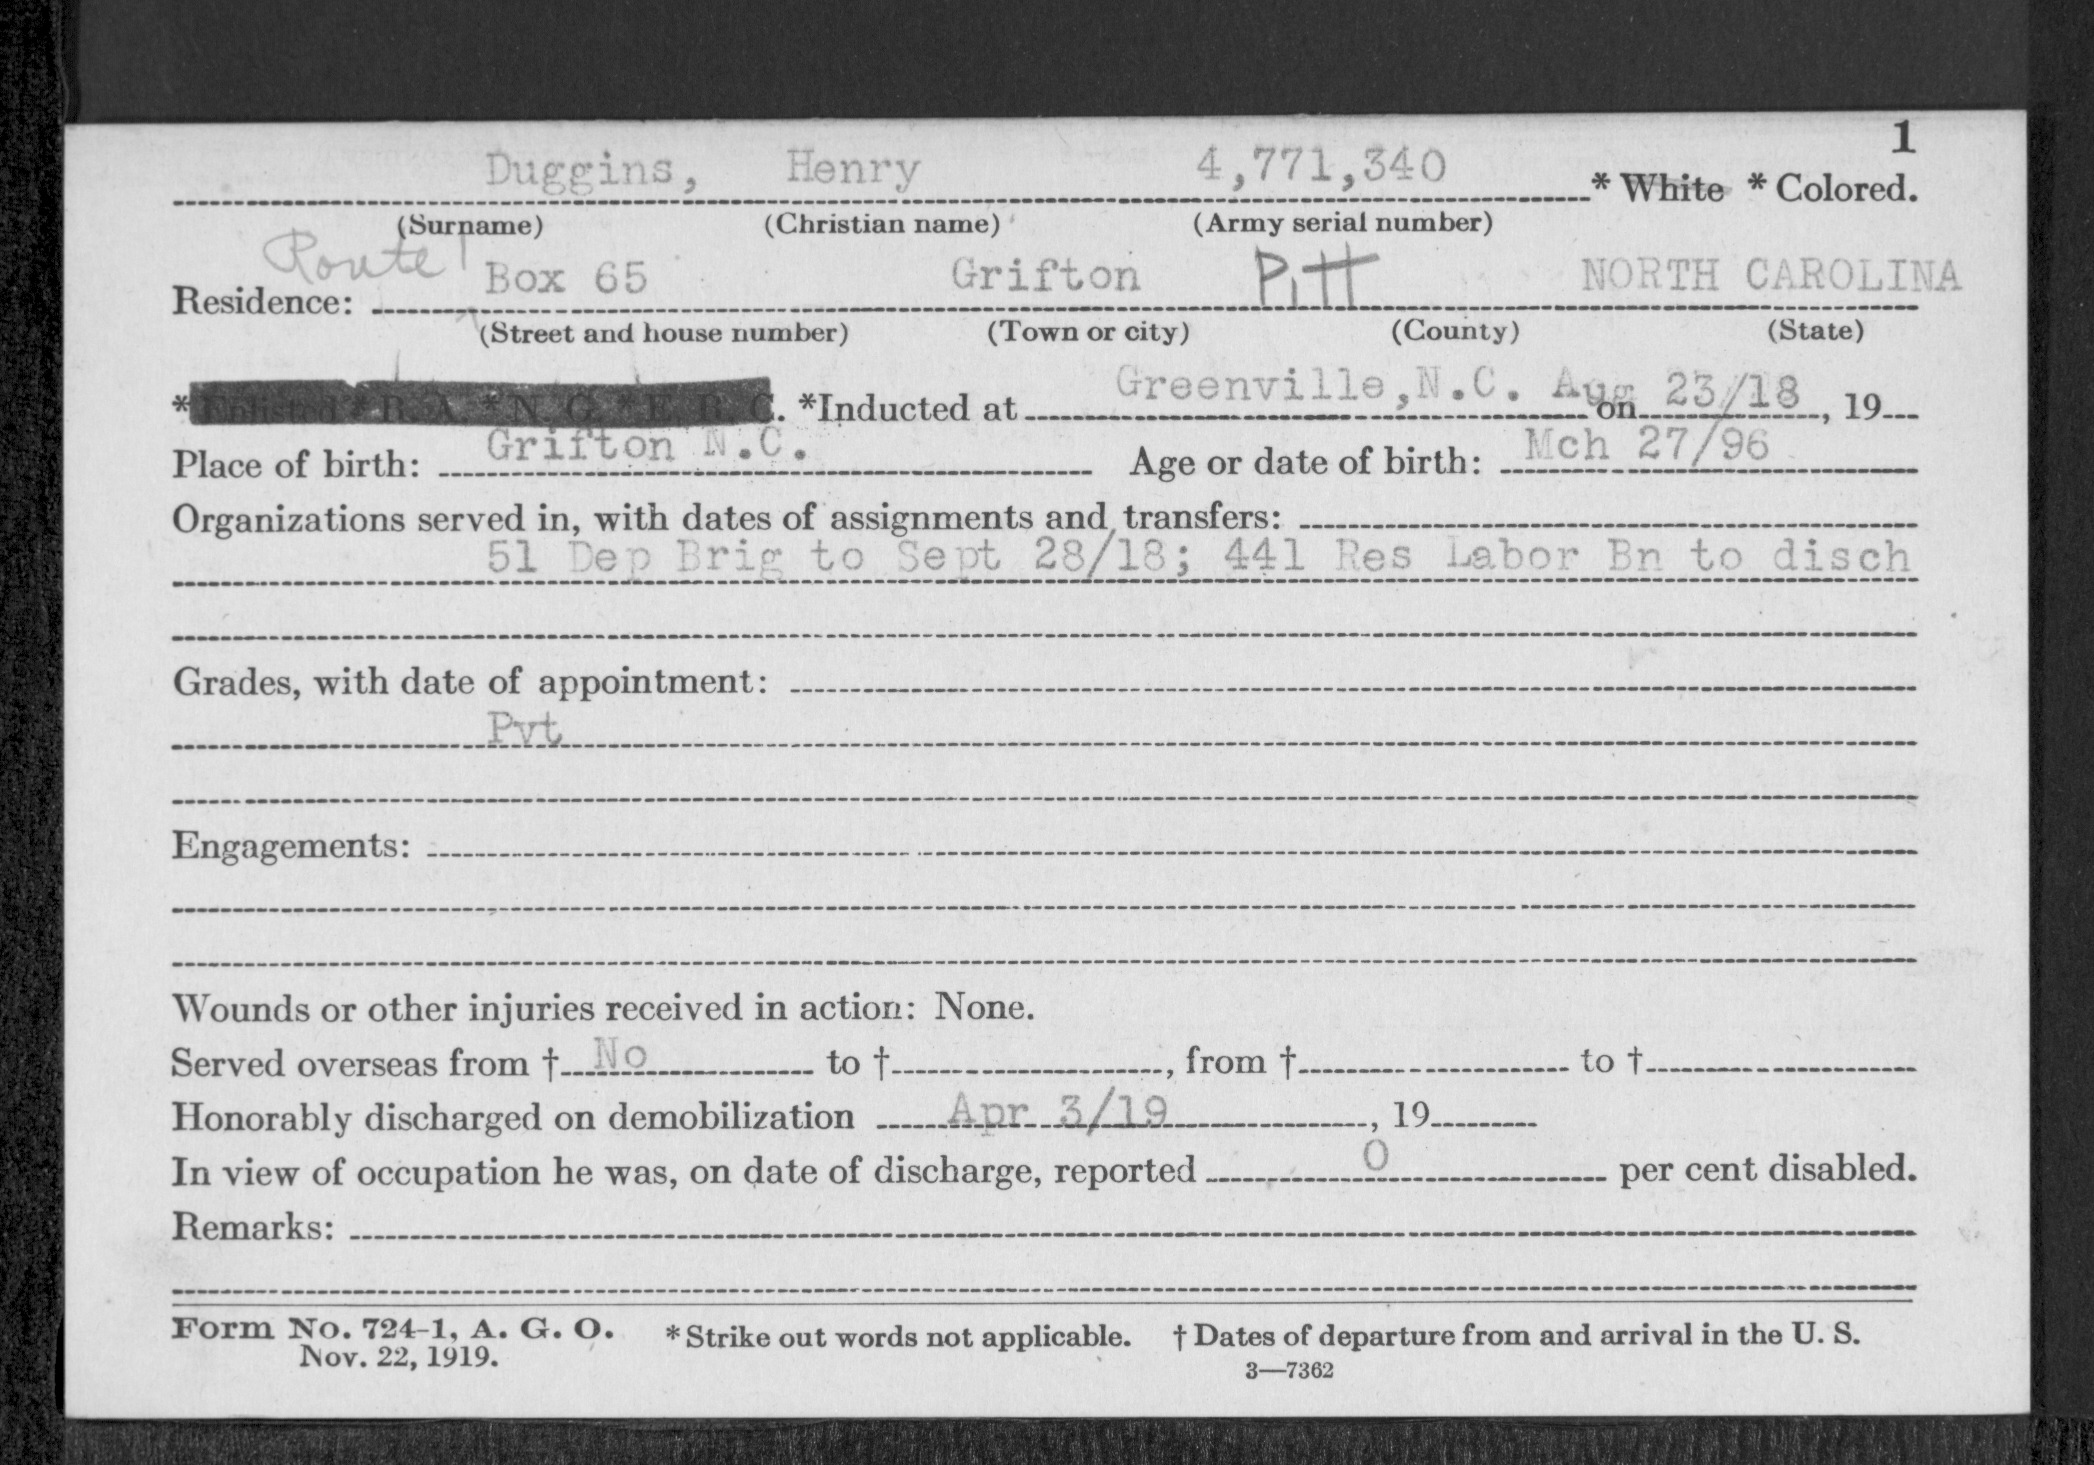 1
Duggins, Henry 4,771,340 * White * Colored.
(Surname) (Christian name) (Army serial number)
Route 1
Residence: Box 65 Grifton Pitt NORTH CAROLINA
(Street and house number) (Town or city) (County) (State)
* Enlisted * R. A. * N. G. * E. R. C. *Inducted at Greenville, N.C. on Aug 23/18, 19
Place of birth: Grifton N.C. Age or date of birth: Mch 27/96
Organizations served in, with dates of assignments and transfers:
51 Dep Brig to Sept 28/18; 441 Res Labor Bn to disch
Grades, with date of appointment:
Pvt
Engagements:
Wounds or other injuries received in action: None.
Served overseas from † No to † , from † to †
Honorably discharged on demobilization Apr 3/19, 19
In view of occupation he was, on date of discharge, reported 0 per cent disabled.
Remarks:
Form No. 724-1, A. G. O. * Strike out words not applicable. † Dates of departure from and arrival in the U. S.
Nov. 22, 1919. 3—7362